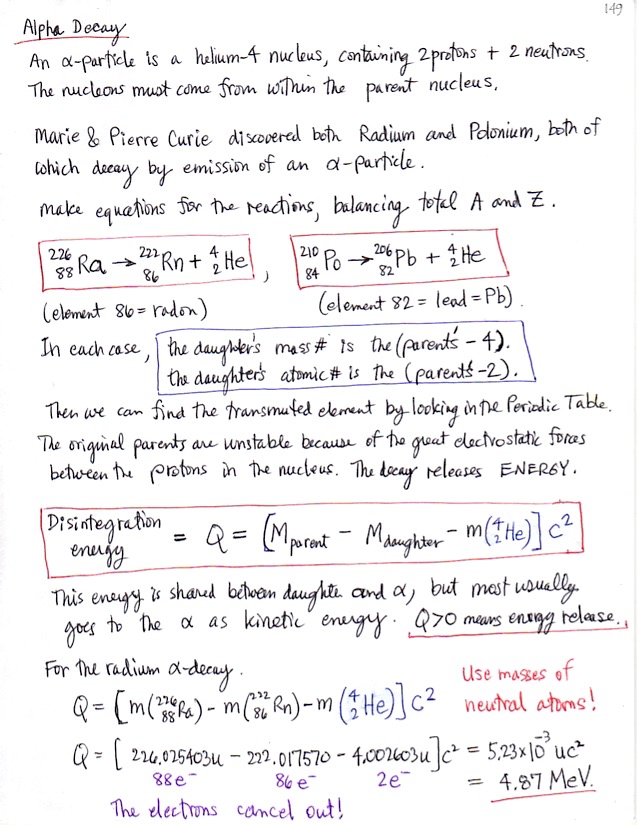 149
Alpha Decay
An α-particle is a helium-4 nucleus, containing 2 protons + 2 neutrons.
The nucleons must come from within the parent nucleus.
Marie & Pierre Curie discovered both Radium and Polonium, both of
which decay by emission of an α-particle.
Make equations for the reactions, balancing total A and Z.
²²⁶₈₈Ra → ²²²₈₆Rn + ⁴₂He , ²¹⁰₈₄Po → ²⁰⁶₈₂Pb + ⁴₂He
(element 86 = radon) (element 82 = lead = Pb).
In each case, the daughter's mass # is the (parent's - 4).
the daughter's atomic # is the (parent's - 2).
Then we can find the transmuted element by looking in the Periodic Table.
The original parents are unstable because of the great electrostatic forces
between the protons in the nucleus. The decay releases ENERGY.
Disintegration energy = Q = [M parent - M daughter - m(⁴₂He)] c²
This energy is shared between daughte and α, but most usually
goes to the α as kinetic energy. Q>0 means energy release.
For the radium α-decay.
Q = [m(²²⁶₈₈Ra) - m(²²²₈₆Rn) - m(⁴₂He)] c²
Use masses of
neutral atoms!
Q = [226.025403u - 222.017570 - 4.002603u] c² = 5.23x10⁻³ uc²
88e⁻ 86e⁻ 2e⁻ = 4.87 MeV.
The electrons cancel out!